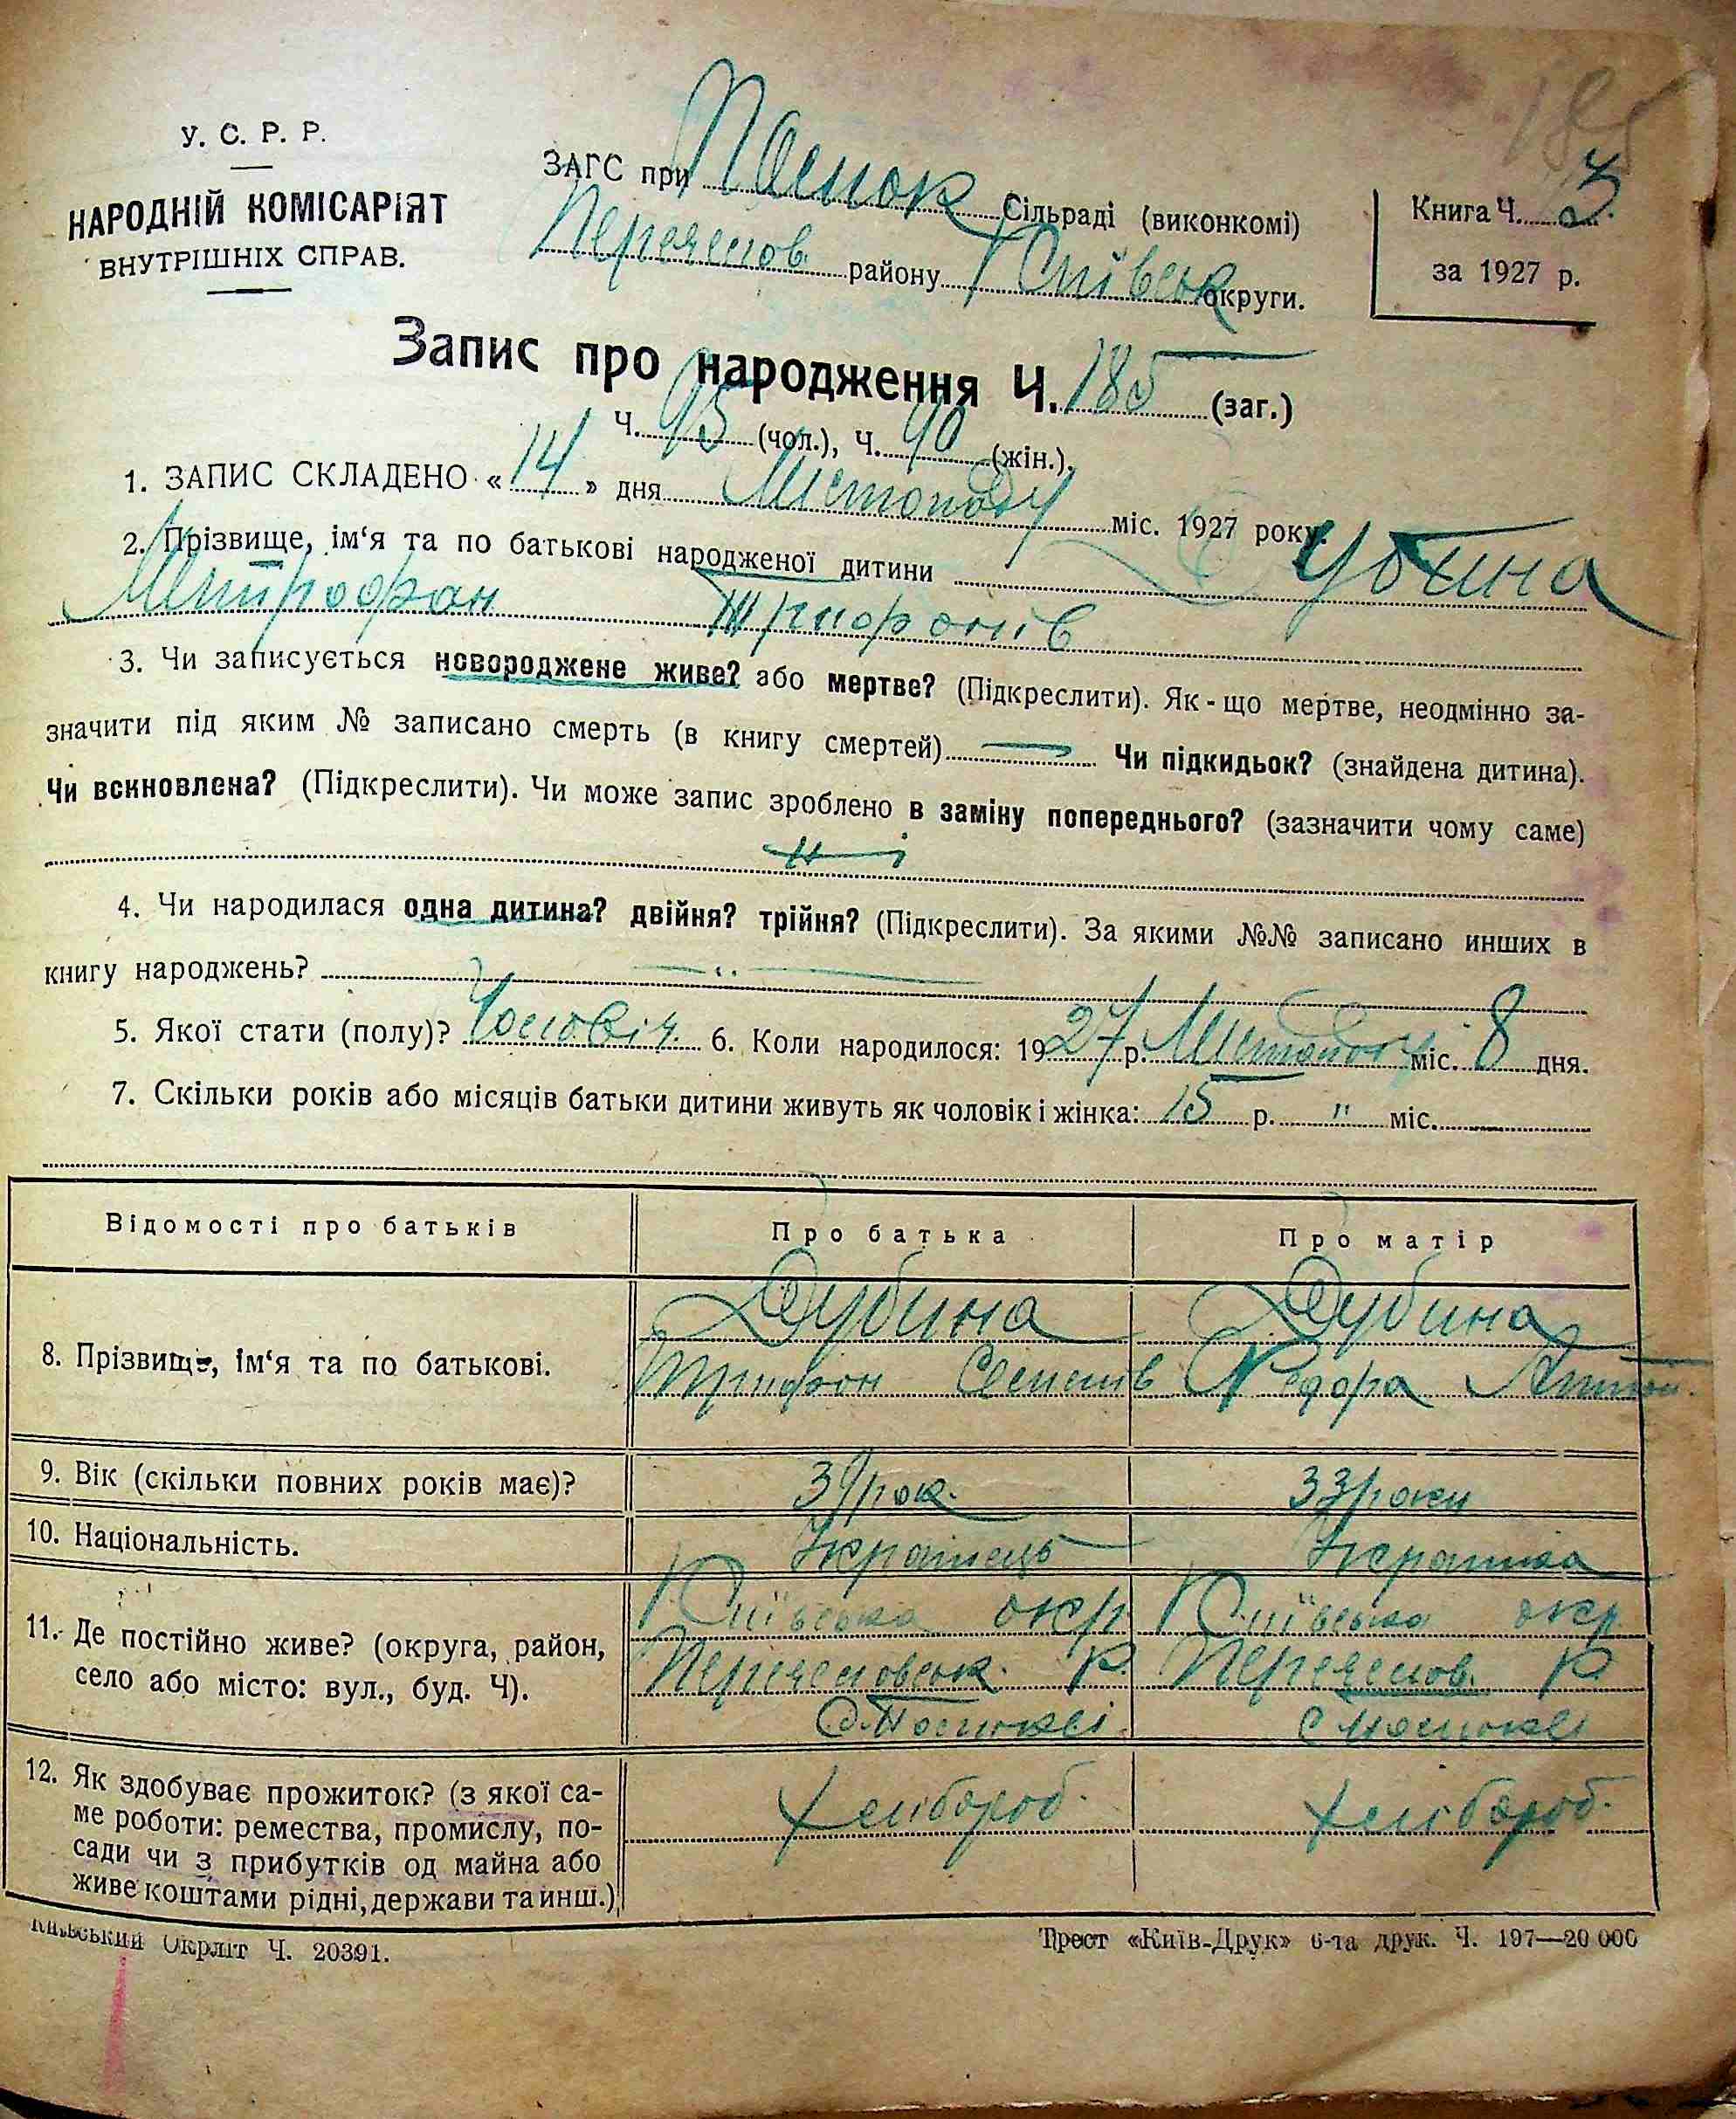 185
У. С. Р. Р.
НАРОДНІЙ КОМІСАРІЯТ
ВНУТРІШНІХ СПРАВ.
ЗАГС при Сільраді (виконкомі)
Переяслов. району Київськ округи.
Книга Ч. 3.
за 1927 р.
Запис про народження Ч. 185 (заг.)
Ч. 95 (чол.), Ч. 90 (жін.).
1. ЗАПИС СКЛАДЕНО «14» дня Листопаду міс. 1927 року.
2. Прізвище, ім‘я та по батькові народженої дитини Дубина
Митрофан Трифонів
3. Чи записується новороджене живе? або мертве? (Підкреслити). Як-що мертве, неодмінно за-
значити під яким № записано смерть (в книгу смертей) — Чи підкидьок? (знайдена дитина).
Чи всиновлена? (Підкреслити). Чи може запис зроблено в заміну попереднього? (зазначити чому саме)
ні
4. Чи народилася одна дитина? двійня? трійня? (Підкреслити). За якими №№ записано инших в
книгу народжень? — „ —
5. Якої стати (полу)? Чоловіч. 6. Коли народилося: 1927 р. Листопаду міс. 8 дня.
7. Скільки років або місяців батьки дитини живуть як чоловік і жінка: 15 р. " міс.
Відомості про батьків Про батька Про матір
8. Прізвище, ім‘я та по батькові. Дубина Дубина
Трифон Семенів Федора Антон.
9. Вік (скільки повних років має)? рок. 33 роки
10. Національність. Українець Українка
11. Де постійно живе? (округа, район, Київська окр Київська окр
село або місто: вул., буд. Ч). Переясловськ. р. Переяслов. р
12. Як здобуває прожиток? (з якої са- хлібороб. хлібороб.
ме роботи: ремества, промислу, по-
сади чи з прибутків од майна або
живе коштами рідні, держави та инш.)
Київський Окрліт Ч. 20391.
Трест «Київ-Друк» 6-та друк. Ч. 197—20 000